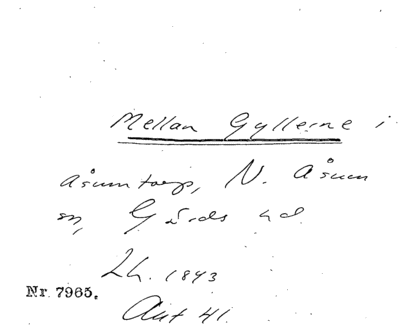 Mellan Gyllerne i
Åsumtorp, N. Åsum
sn, Gärds hd
Lh. 1843
Nr 7965.
Akt 41.